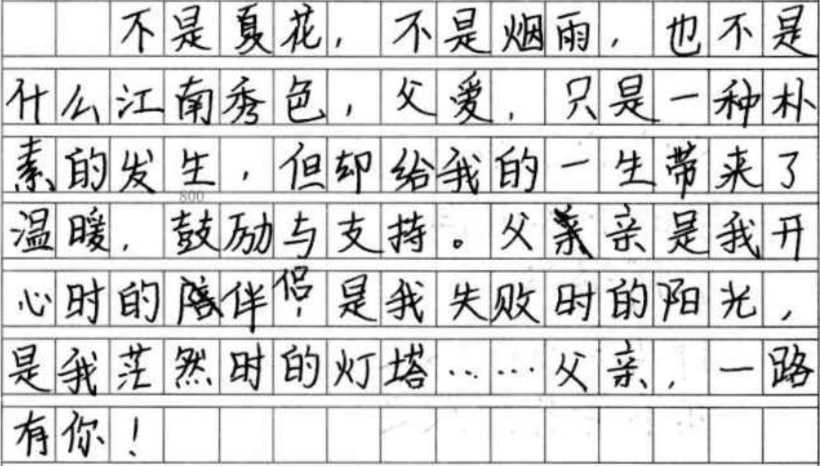 不是夏花，不是烟雨，也不是
什么江南秀色，父爱，只是一种朴
素的发生，但却给我的一生带来了
800
温暖，鼓励与支持。父亲是我开
心时的陪伴侣，是我失败时的阳光，
是我茫然时的灯塔……父亲，一路
有你！